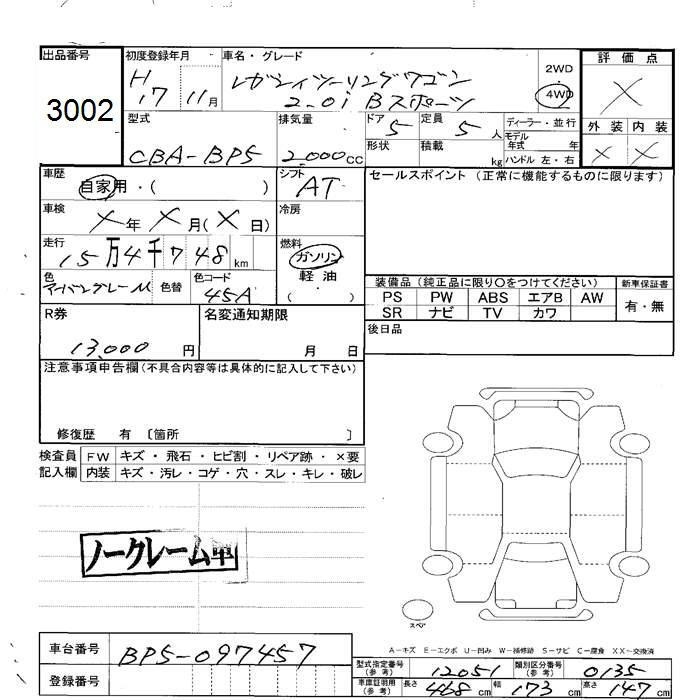 出品番号
3002
初度登録年月
H
17 11月
車名・グレード
レガシィツーリングワゴン
2.0i Bスポーツ
2WD
4WD
評価点
×
外装 内装
× ×
型式
CBA-BP5
排気量
2,000cc
ドア
5
定員
5人
形状
積載
kg
ディーラー・並行
モデル
年式 年
ハンドル 左・右
車歴
自家用・( )
シフト
AT
セールスポイント (正常に機能するものに限ります)
車検
×年×月(×日)
冷房
走行
15万4千748km
燃料
ガソリン
軽油
( )
色
アーバングレーM
色替
色コード
45A
装備品 (純正品に限り○をつけてください)
PS PW ABS エアB AW
SR ナビ TV カワ
新車保証書
有・無
R券
13,000円
名変通知期限
月 日
後日品
注意事項申告欄(不具合内容等は具体的に記入して下さい)
修復歴 有 〔箇所 〕
検査員 FW キズ・飛石・ヒビ割・リペア跡・×要
記入欄 内装 キズ・汚レ・コゲ・穴・スレ・キレ・破レ
ノークレーム車
スペア
A-キズ E-エクボ U-凹み W-補修跡 S-サビ C-腐食 XX-交換済
車台番号
BP5-097457
登録番号
型式指定番号
(参考)
12051
類別区分番号
(参考)
0135
車庫証明用
(参考)
長さ 468cm 幅 173cm 高さ 147cm